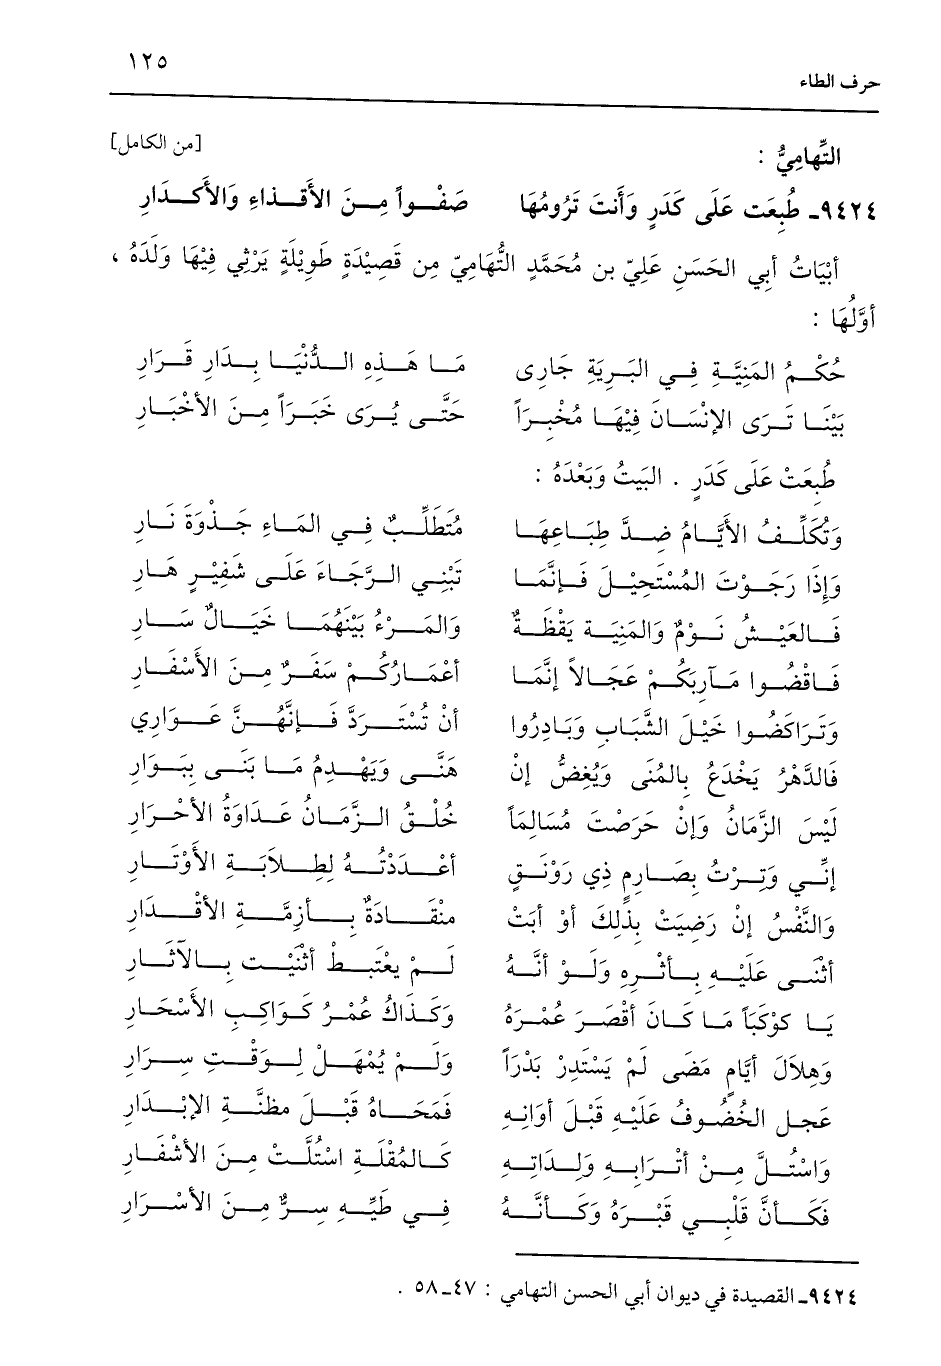 ١٢٥
حرف الطاء
التِّهامِيُّ : [من الكامل]
٩٤٢٤ـ طُبِعَت عَلَى كَدَرٍ وَأَنتَ تَرُومُهَا صَفْواً مِنَ الأَقذَاءِ وَالأَكدَارِ
أبْيَاتُ أبي الحَسَنِ عَلِيّ بن مُحَمَّدٍ التُّهَامِيّ مِن قَصِيْدَةٍ طَوِيْلَةٍ يَرْثِي فِيْهَا وَلَدَهُ ،
أوَّلُهَا :
حُكْمُ المَنِيَّةِ فِي البَرِيَةِ جَارِى مَا هَذِهِ الدُّنْيَا بِدَارِ قَرَارِ
بَيْنَا تَرَى الإنْسَانَ فِيْهَا مُخْبِراً حَتَّى يُرَى خَبَراً مِنَ الأَخْبَارِ
طُبعَتْ عَلَى كَدَرٍ . البَيتُ وَبَعْدَهُ :
وَتُكَلِّفُ الأَيَّامُ ضِدَّ طِبَاعِهَا مُتَطَلِّبٌ فِي المَاءِ جَذْوَةَ نَارِ
وَإِذَا رَجَوْتَ المُسْتَحِيْلَ فَإنَّمَا تَبْنِي الرَّجَاءَ عَلَى شَفِيْرٍ هَارِ
فَالعَيْشُ نَوْمٌ وَالمَنِيَة يَقْظَةٌ وَالمَرْءُ بَيْنَهُمَا خَيَالٌ سَارِ
فَاقْضُوا مَآرِبَكُمْ عَجَالاً إنَّمَا أعْمَارُكُمْ سَفَرٌ مِنَ الأَسْفَارِ
وَتَرَاكَضُوا خَيْلَ الشَّبَابِ وَبَادِرُوا أنْ تُسْتَرَدَّ فَإنَّهُنَّ عَوَارِي
فَالدَّهْرُ يَخْدَعُ بِالمُنَى وَيُغِصُّ إنْ هَنَّى وَيَهْدِمُ مَا بَنَى بِبَوَارِ
لَيْسَ الزَّمَانُ وَإنْ حَرَصْتَ مُسَالِمَاً خُلْقُ الزَّمَانُ عَدَاوَةُ الأحْرَارِ
إنِّي وَتِرْتُ بِصَارِمٍ ذِي رَوْنَقٍ أعْدَدْتُهُ لِطلابَةِ الأَوْتَارِ
وَالنَّفْسُ إنْ رَضِيَتْ بِذَلِكَ أوْ أبَتْ منْقَادَةٌ بِأزِمَّةِ الأقْدَارِ
أثْنَى عَلَيْهِ بِأثْرِهِ وَلَوْ أنَّهُ لَمْ يغْتَبِطْ أثْنَيْتُ بِالآثَارِ
يَا كَوْكَبَاً مَا كَانَ أقْصَرَ عُمْرَهُ وَكَذَاكَ عُمْرُ كَوَاكِبِ الأسْحَارِ
وَهِلالَ أيَّامٍ مَضَى لَمْ يَسْتَدِرْ بَدْرَاً وَلَمْ يُمْهَلْ لِوَقْتِ سِرَارِ
عَجل الخُضُوفُ عَلَيْهِ قَبْلَ أوَانِهِ فَمَحَاهُ قَبْلَ مظنَّةِ الإبْدَارِ
وَاسْتُلَّ مِنْ أتْرَابِهِ وَلِدَاتِهِ كَالمُقْلَةِ اسْتُلَّتْ مِنَ الأَشْفَارِ
فَكَأنَّ قَلْبِي قَبْرَهُ وَكَأنَّهُ فِي طَيِّهِ سِرٌّ مِنَ الأَسْرَارِ
٩٤٢٤ـ القصيدة في ديوان أبي الحسن التهامي : ٤٧ـ٥٨ .